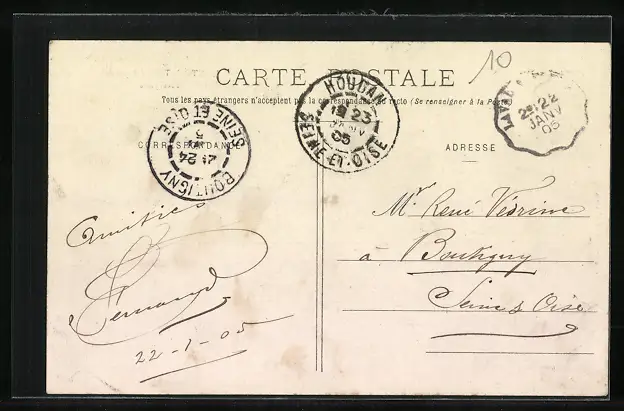 10
CARTE POSTALE
Tous les pays étrangers n'acceptent pas la correspondance au recto (Se renseigner à la Poste)
CORRESPONDANCE
ADRESSE
HOUDAN
23
05
SEINE-ET-OISE
BOUTIGNY
24
SEINE ET OISE
22
JANV
05
Mr. René Védrine
à Boutigny
Seine & Oise
Amitiés
Fernand
22-1-05